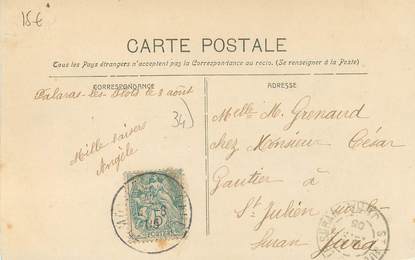 15€
CARTE POSTALE
Tous les Pays étrangers n'acceptent pas la Correspondance au recto. (Se renseigner à la Poste)
CORRESPONDANCE
Palavas-les-Flots le 8 août
34
Mille baisers
Angèle
ADRESSE
Melle M. Grenaud
chez Monsieur César
Gautier à
St Julien sur le
Suran Jura